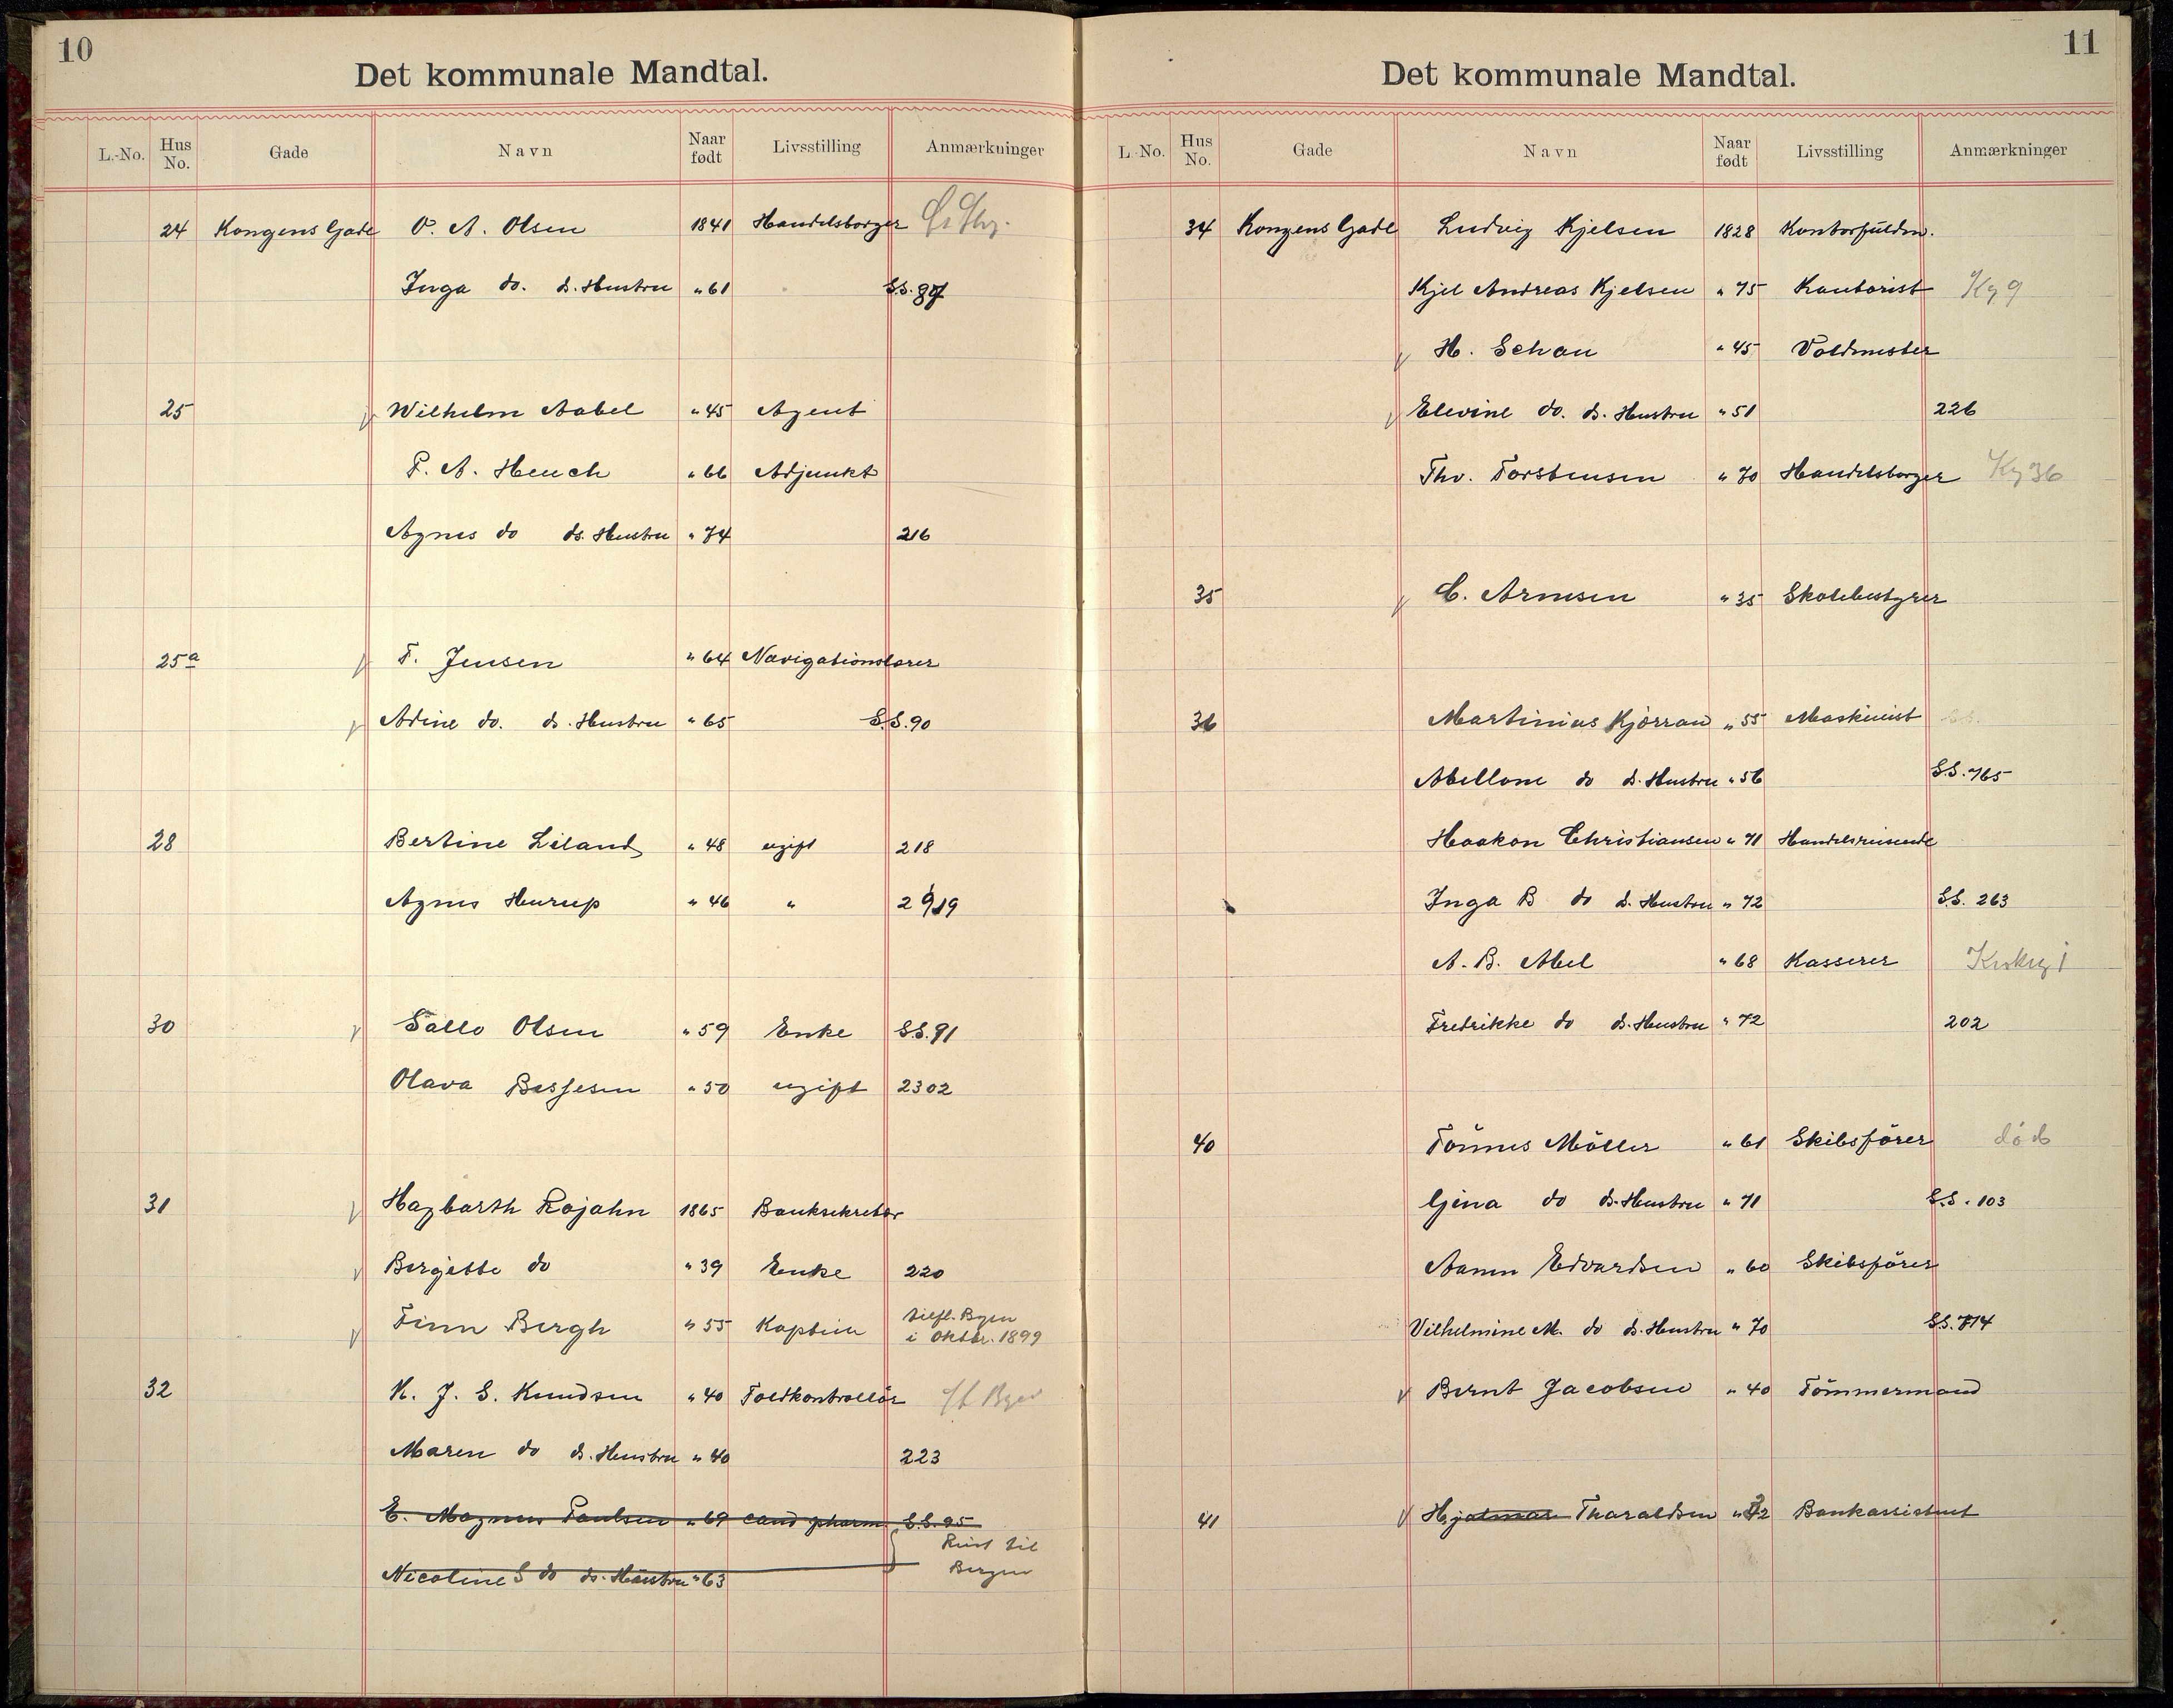 10
Det kommunale Mandtal.
L.-No. Hus No. Gade Navn Naar født Livsstilling Anmærkninger
24 Kongens Gade O. A. Olsen 1841 Handelsborger
Inga do. ds. Hustru " 61 S.S. 87
25 Wilhelm Aabel " 45 Agent
P. A. Heuch " 66 Adjunkt
Agnes do ds. Hustru " 74 216
25a F. Jensen " 64 Navigationslærer
Adine do. ds. Hustru " 65 S.S. 90
28 Bertine Liland " 48 ugift 218
Agnes Hurup " 46 " 219
30 Sallo Olsen " 59 Enke S.S. 91
Olava Bassesen " 50 ugift 2302
31 Hagbarth Rojahn 1865 Banksekretær
Bergitte do " 39 Enke 220
Finn Bergh " 55 Kaptein tilfl. Byen
i Oktbr. 1899
32 K. J. S. Knudsen " 40 Toldkontrollör f Byen
Maren do ds. Hustru " 40 223
E. Magnus Paulsen " 69 cand pharm S.S. 95
Reist til
Nicoline S do ds. Hustru " 63 Bergen
11
Det kommunale Mandtal.
L.-No. Hus No. Gade Navn Naar født Livsstilling Anmærkninger
34 Kongens Gade Ludvig Kjelsen 1828 Kontorfuldm.
Kjel Andreas Kjelsen " 75 Kontorist Kg 9
H. Schau " 45 Voldmester
Elevine do. ds. Hustru " 51 226
Thv. Torstensen " 70 Handelsborger Kg 36
35 C. Arnesen " 35 Skolebestyrer
36 Martinius Kjörran " 55 Maskinist
Abellone do ds. Hustru " 56 S.S. 765
Haakon Christiansen " 71 Handelsreisende
Inga B do ds. Hustru " 72 S.S. 263
A. B. Abel " 68 Kasserer
Fredrikke do ds. Hustru " 72 202
40 Tönnes Möller " 61 Skibsförer död
Gjina do ds. Hustru " 71 S.S. 103
Aanen Edvardsen " 60 Skibsförer
Vilhelmine M. do ds. Hustru " 70 S.S. 714
Bernt Jacobsen " 40 Tömmermand
41 Hjalmar Tharaldsen " 72 Bankassistent